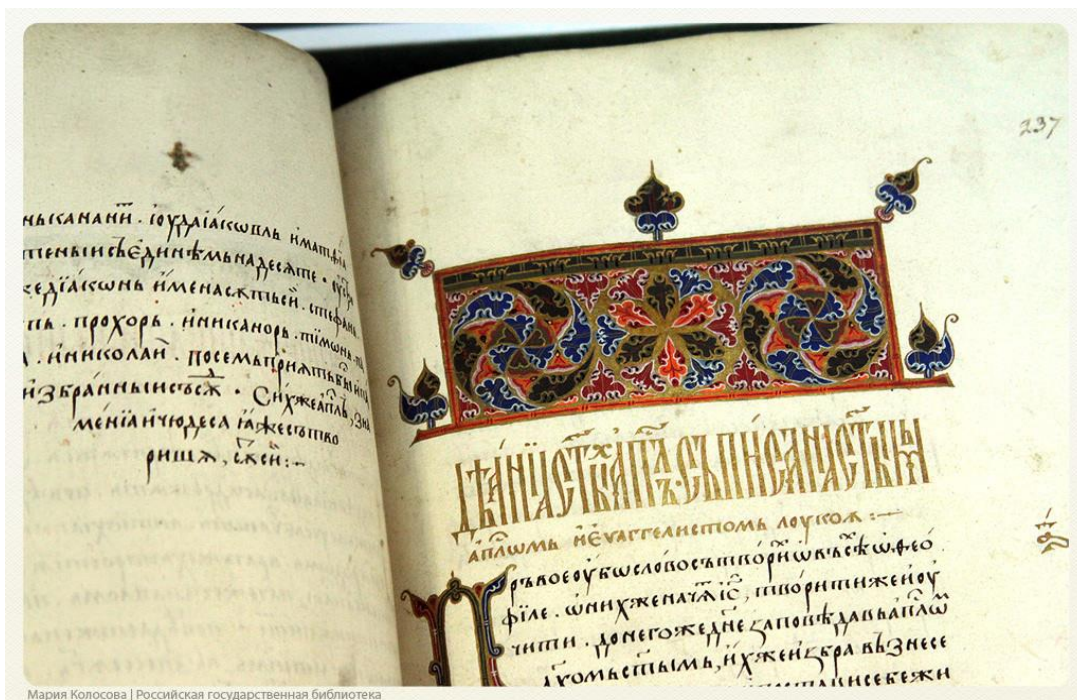 нꙑ кананⷩи҃ . і҆ꙋда і҆а́кѡвль и҆ матⷴфі́а
и҆ съ є҆ди́нѣмь на десѧте .
и҆мена сѫть сїи̑ . стефань
прохорь . и҆ никанорь . тїмонь .
. и҆ николаи̑ . по семь прїѧть
избранныи съсѫⷣ . Си́хже апⷭ҇ль , зна
ме́нїа и҆ чюдеса ꙗ҆́же сътво
ришѧ , сѫ́ сїи̑ : ~
237
Дѣꙗнїа ст҃ыхъ апⷭ҇лъ . съписана ст҃ыⷨ
а҆пⷭ҇лѡмь и҆ є҆ѵаггелистомь лоукоѫ : ~
Пръвое ᲂу҆́бѡ слово сътвори́хь ѡ҆ въсѣ́хь ѡ҆́ ѳео́
філе . ѡ҆ ни́хже начѧⷮ і҆с҃ , творити же и҆ ᲂу҆
чити . до него́же дн҃е заповѣ́давь а҆пⷭ҇лѡⷨ
дх҃омь ст҃ы́мь , и҆́хже и҆ꙁбра възнесе
Мария Колосова | Российская государственная библиотека